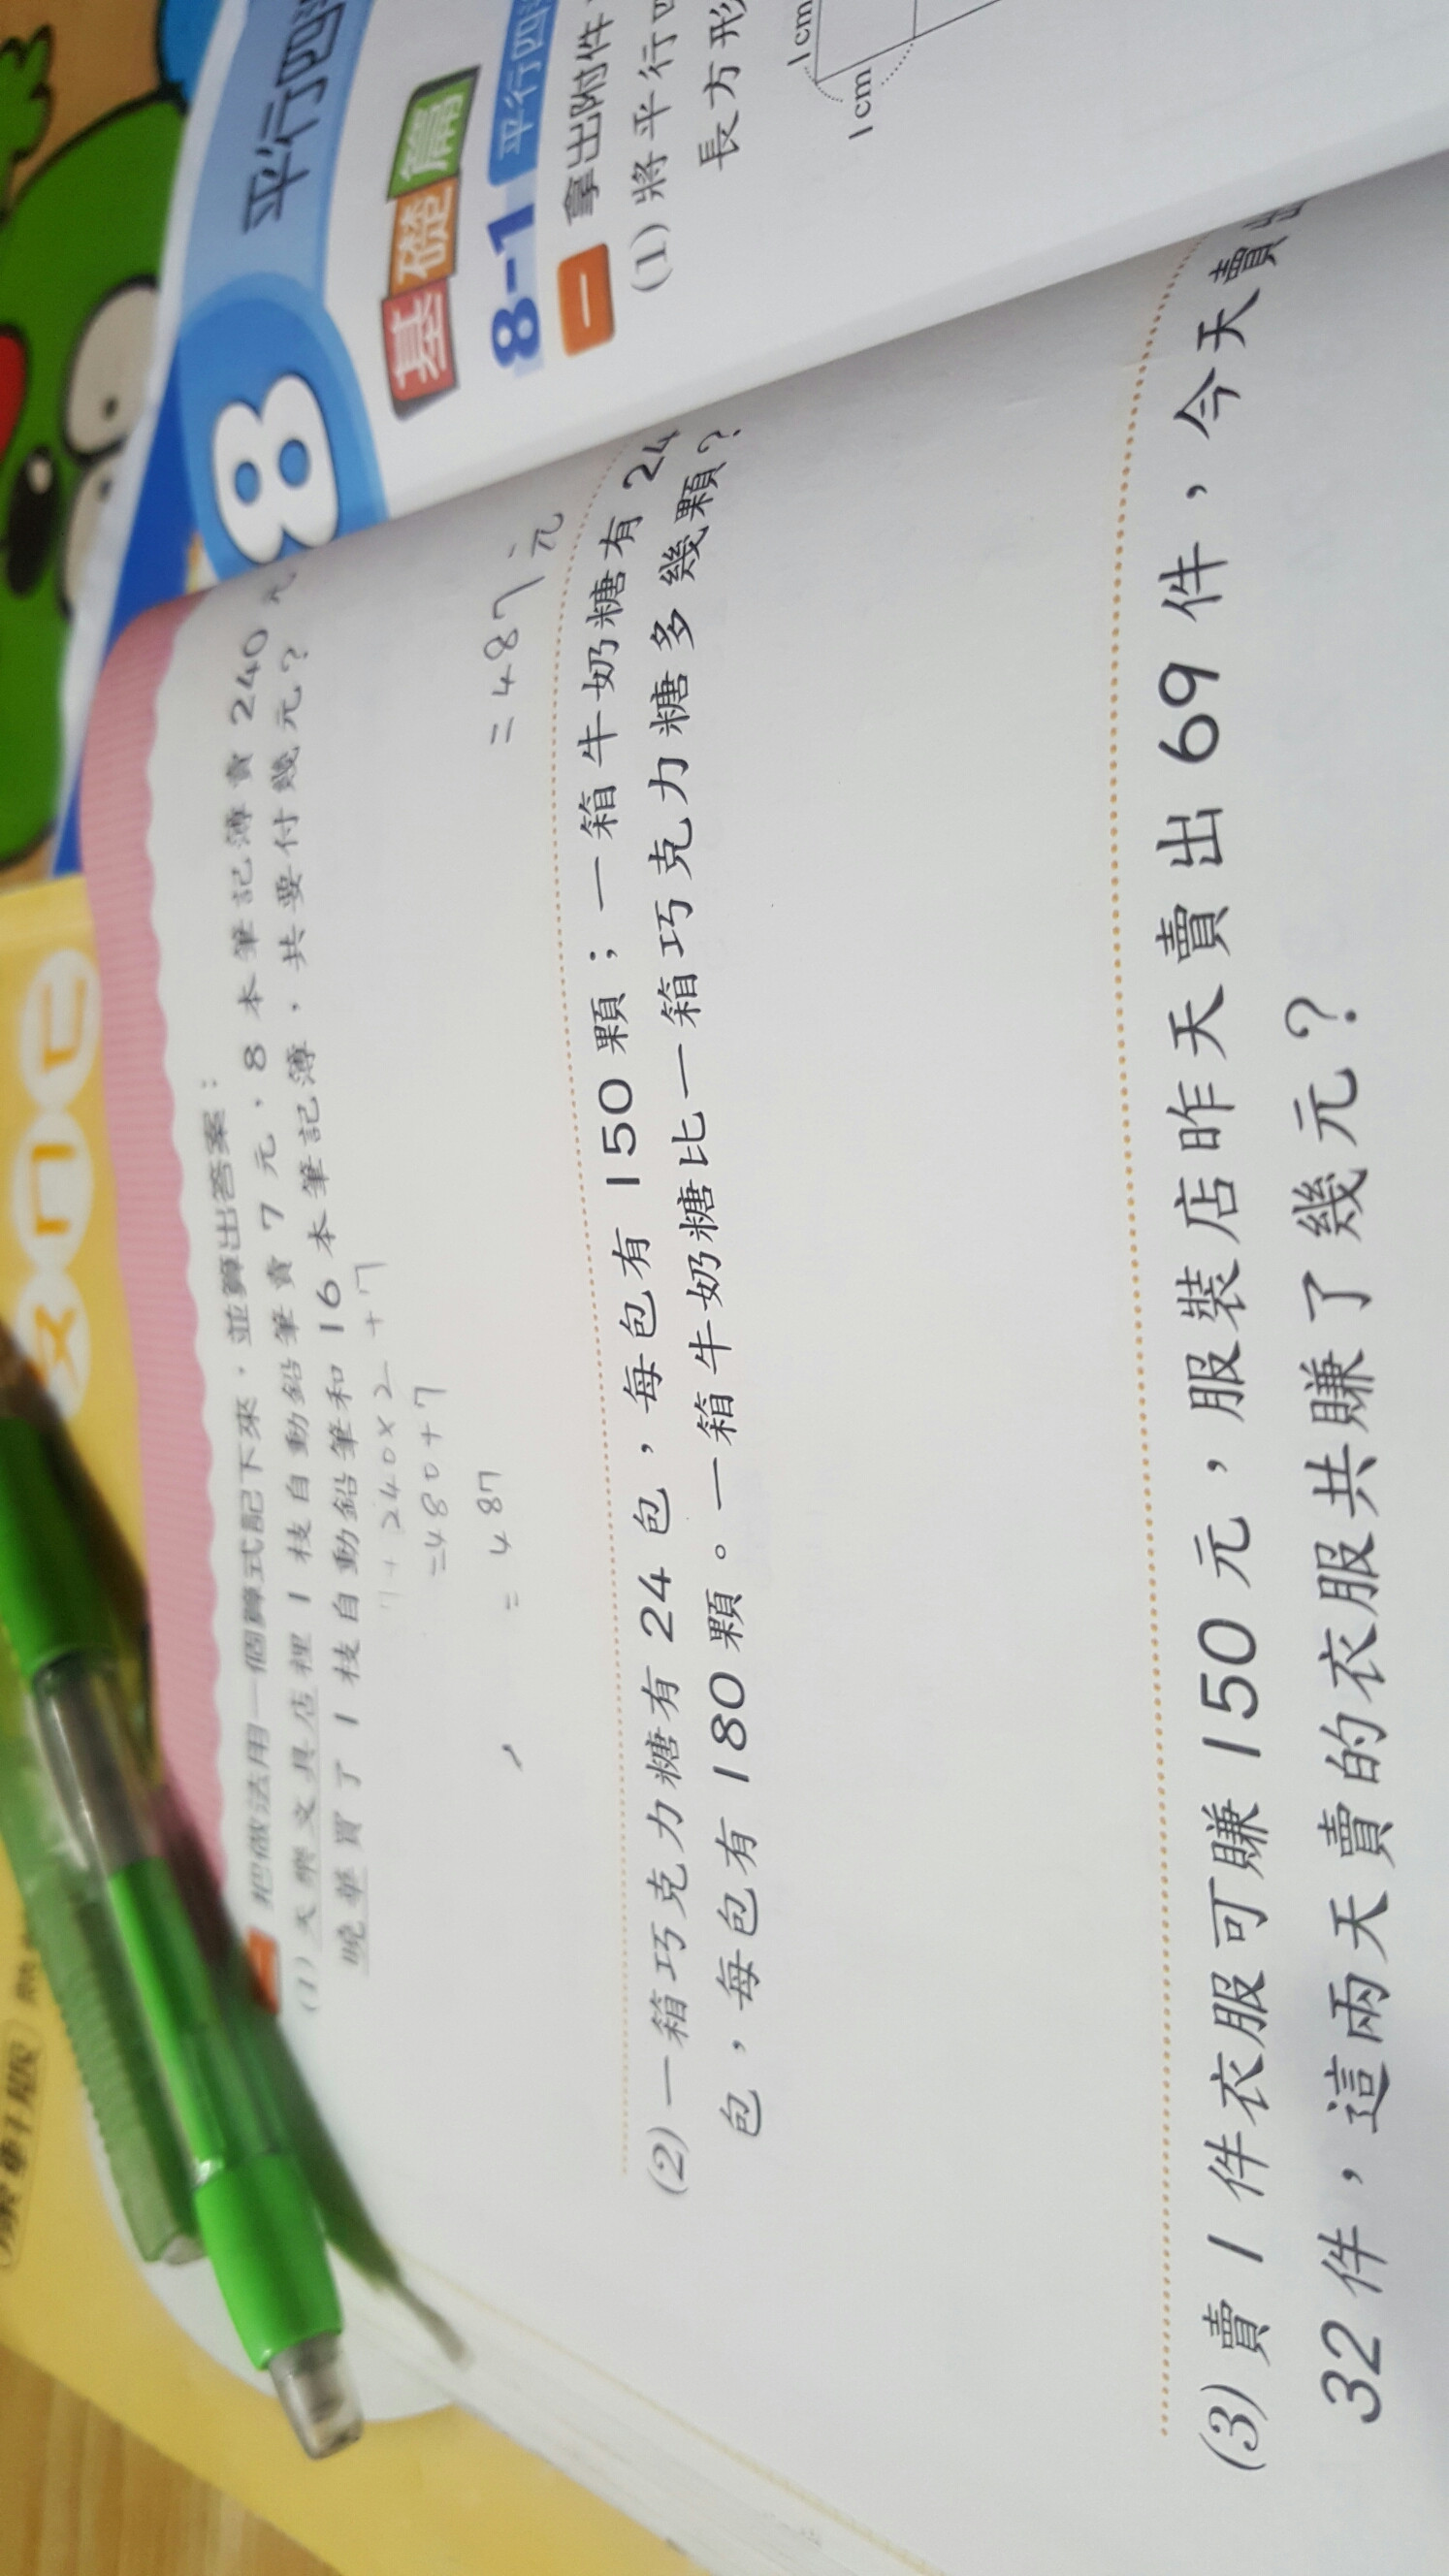 一 把做法用一個算式記下來，並算出答案：
(1) 大樂文具店裡 1 枝自動鉛筆賣 7 元，8 本筆記簿賣 240 元
曉華買了 1 枝自動鉛筆和 16 本筆記簿，共要付幾元？
7+240×2 +7
=480+7
= 487
= 487 元
(2) 一箱巧克力糖有 24 包，每包有 150 顆；一箱牛奶糖有 24
包，每包有 180 顆。一箱牛奶糖比一箱巧克力糖多幾顆？
(3) 賣 1 件衣服可賺 150 元，服裝店昨天賣出 69 件，今天賣出
32 件，這兩天賣的衣服共賺了幾元？
8 平行四
基礎篇
8-1 平行四
一 拿出附件
(1) 將平行四
長方形
1cm
1cm